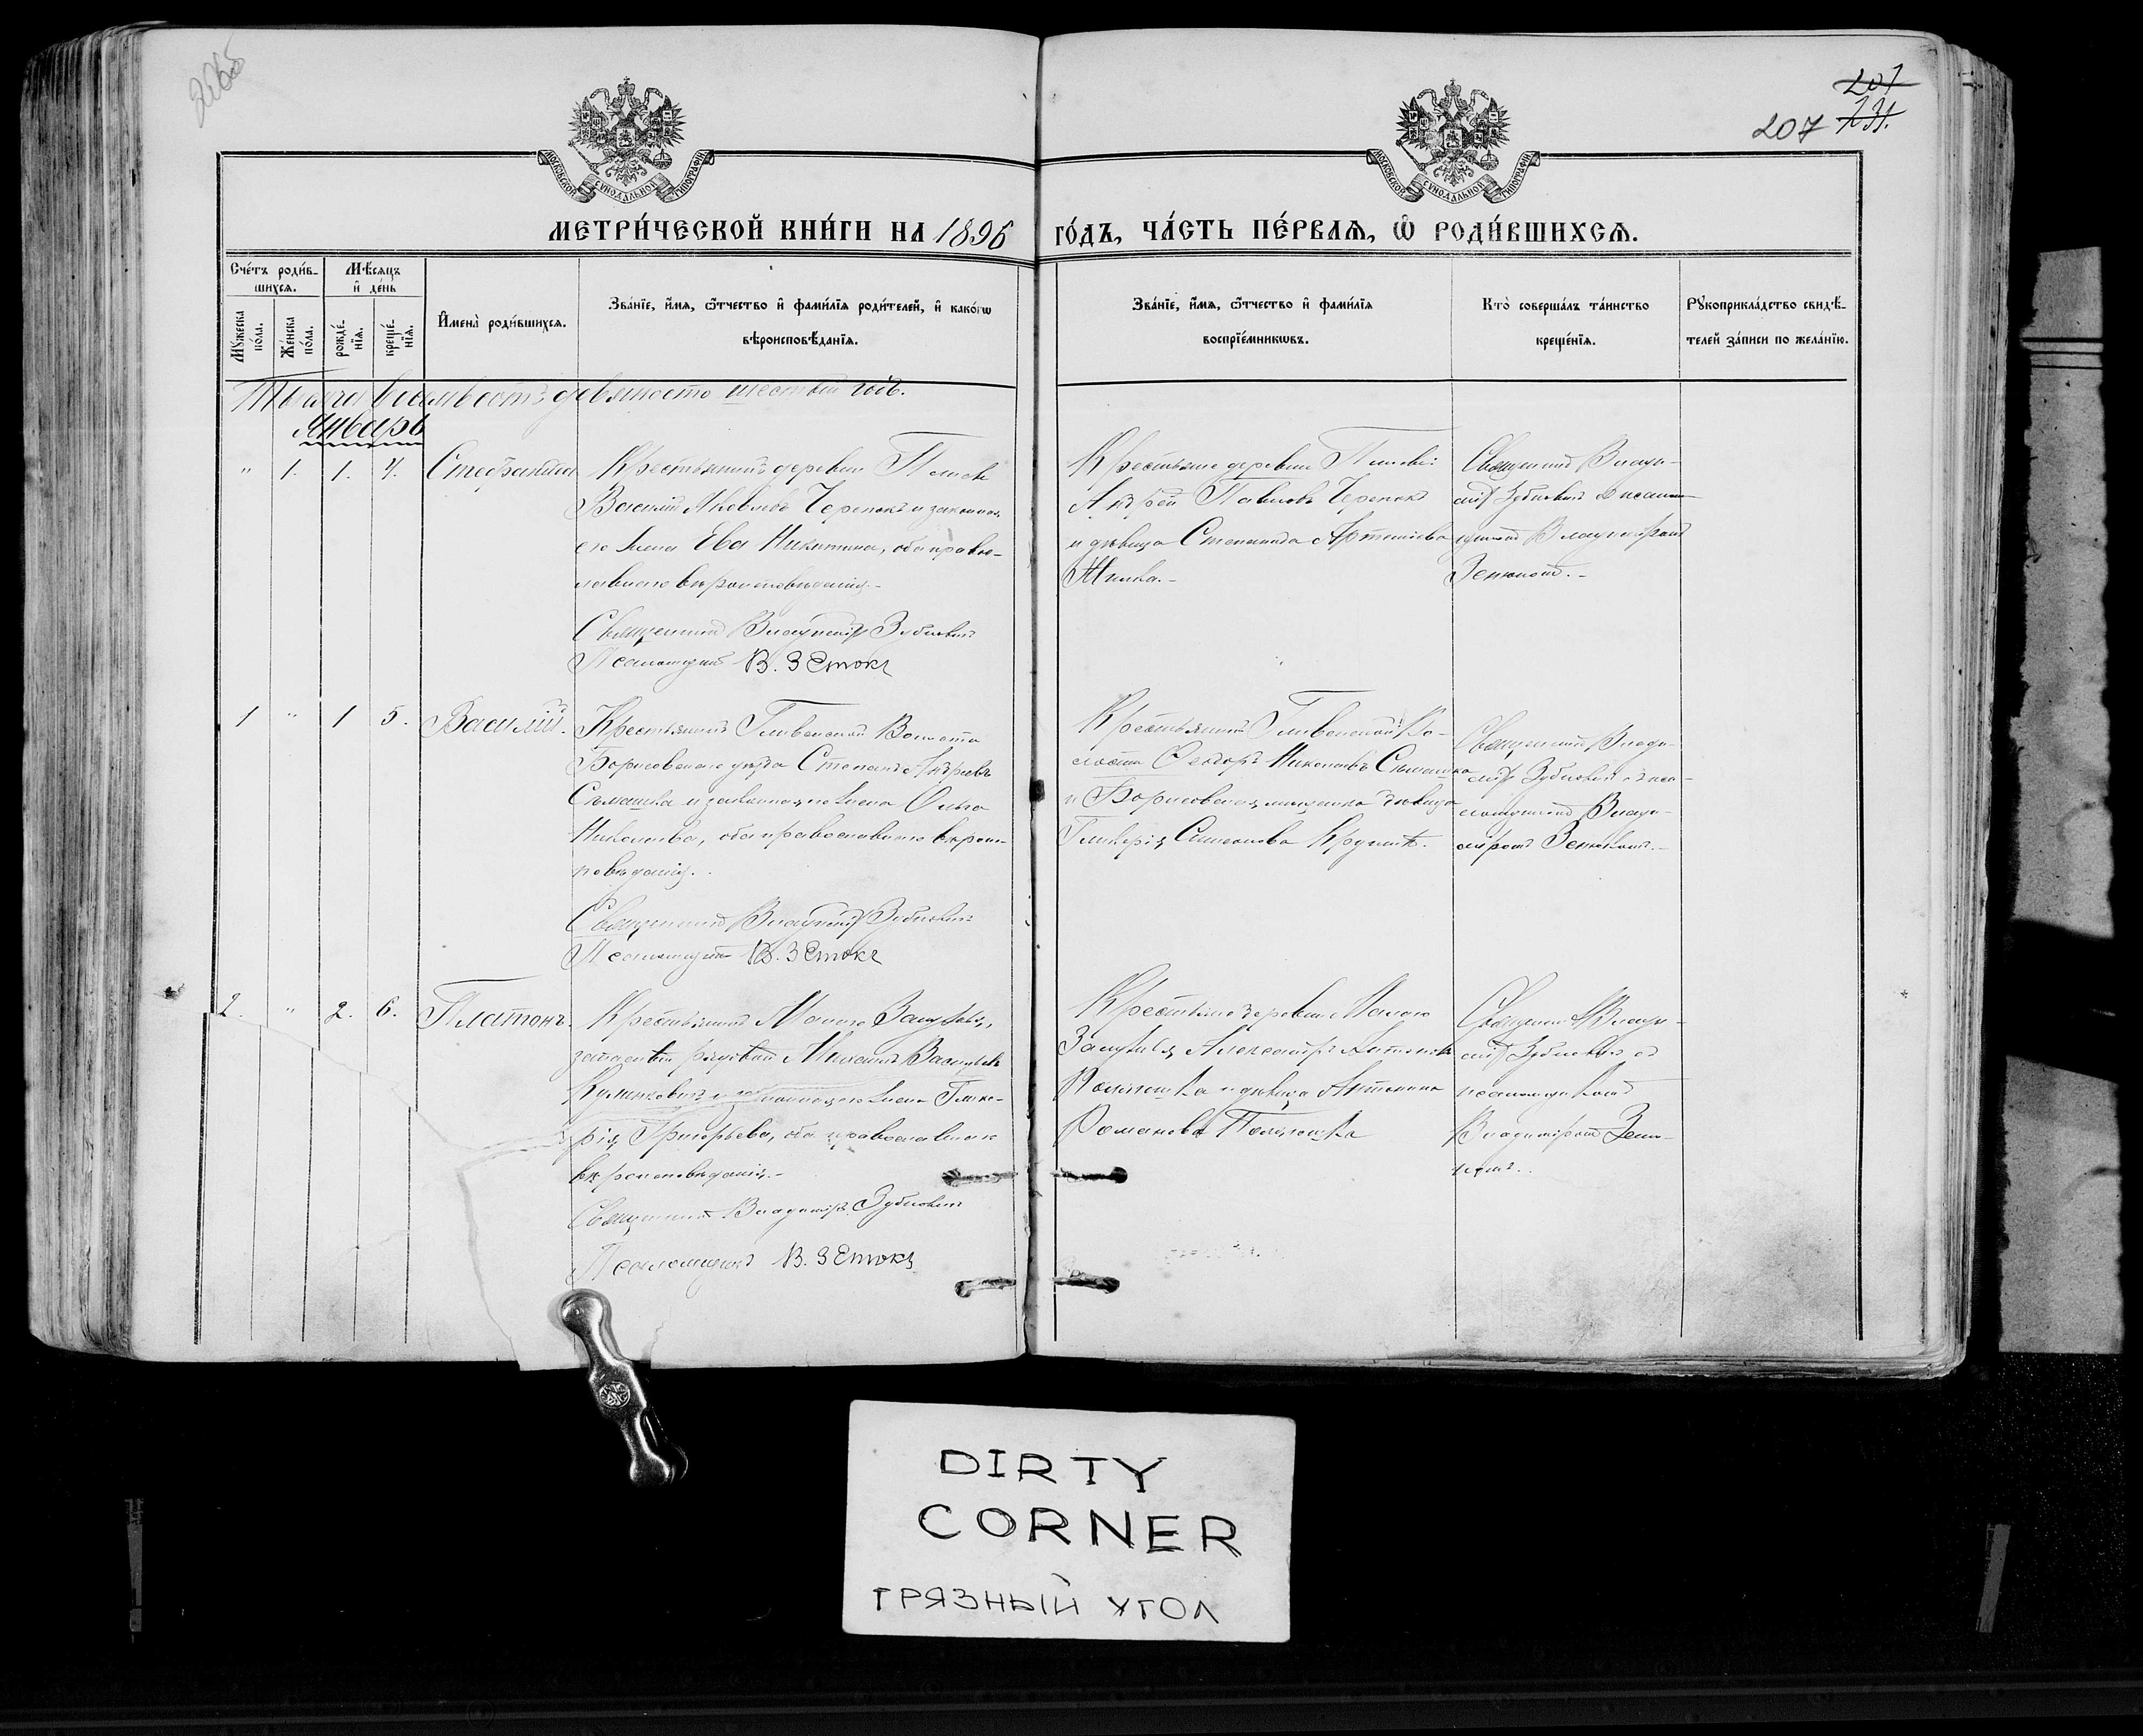 207
231.
207
МОСКОВСКОЙ СѴНОДАЛЬНОЙ ТИПОГРАФІИ
МОСКОВСКОЙ СѴНОДАЛЬНОЙ ТИПОГРАФІИ
МЕТРИ́ЧЕСКОЙ КНИ́ГИ НА 1896 ГО́ДЪ, ЧА́СТЬ ПЕ́РВАѦ, Ѡ РОДИ́ВШИХСѦ.
Сче́тъ роди́в-
шихсѧ.
Мѣ́сѧцъ
и де́нь
Мꙋ́жеска
по́ла.
Же́нска
по́ла.
рожде́-
нїѧ.
креще́-
нїѧ.
Имена̀ роди́вшихсѧ.
Зва́нїе, и́мѧ, ѻ́тчество и фами́лїѧ роди́телей, и како́гѡ
вѣроисповѣ́данїѧ.
Зва́нїе, и́мѧ, ѻ́тчество и фами́лїѧ
воспрїе́мникѡвъ.
Кто̀ соверша́лъ та́инство
креще́нїѧ.
Рꙋкоприкла́дство свидѣ́-
телей за́писи по жела́нїю.
Тысяча восемьсотъ девяносто шестый годъ.
Январь
" 1. 1. 4. Стефанида
Крестьянинъ деревни
Василій Яковлевъ Черепокъ и законная
его жена Ева Никитина, оба право-
славнаго вѣроисповѣданія.-
Священникъ Владиміръ Зубковичъ
Псаломщикъ В. Зенюкъ
Крестьяне деревни
Андрей Павловъ Черепокъ
и дѣвица Степанида Артемьева
Священникъ Влади-
міръ Зубковичъ съ псалом-
щикомъ Владиміромъ
Зенюкомъ.-
1 " 1 5. Василій.
Крестьянинъ Гливенской Волости
Борисовскаго уѣзда Степанъ Андреевъ
Сѣмашка и законная его жена Ольга
Николаева, оба православнаго вѣроис-
повѣданія.
Священникъ Владиміръ Зубковичъ
Псаломщикъ В. Зенюкъ
Крестьянинъ Гливенской Во-
лости Ѳеодоръ Николаевъ Сѣмашка
и Борисовская мѣщанка дѣвица
Гликерія Симеонова
Священникъ Влади-
міръ Зубковичъ съ пса-
ломщикомъ Влади-
міромъ Зенюкомъ.-
2. " 2. 6. Платонъ.
Крестьянинъ Малаго
запасный рядовой Михаилъ Васильевъ
Куликовичъ и законная его жена Глике-
рія Григорьева, оба православнаго
вѣроисповѣданія.-
Священникъ Владиміръ Зубковичъ
Псаломщикъ В. Зенюкъ
Крестьяне деревни Малаго
Александръ Антоновъ
и дѣвица Антонина
Романова
Священникъ Влади-
міръ Зубковичъ съ
псаломщикомъ
Владиміромъ Зеню-
комъ.
DIRTY
CORNER
ГРЯЗНЫЙ УГОЛ